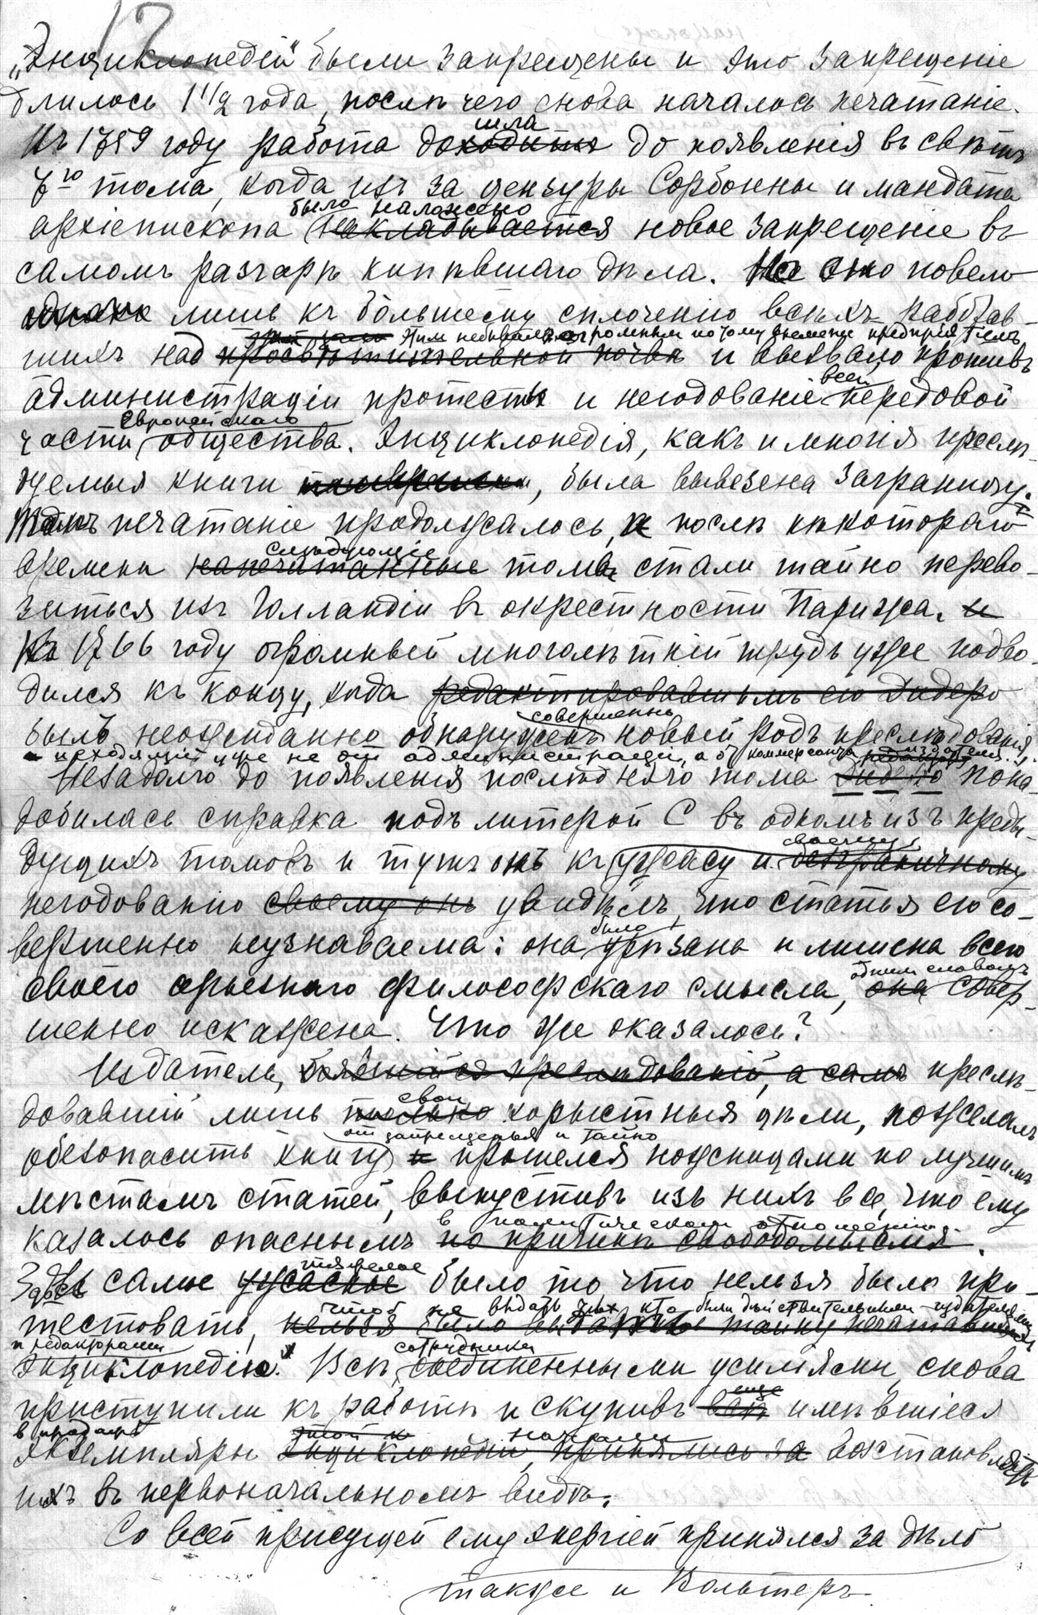 17
„Энциклопедіи“ были запрещены и это запрещеніе
длилось 1 1/2 года, послѣ чего снова началось печатаніе.
Къ 1759 году работа доходитъ шла до появленія въ свѣтъ
7го тома, когда изъ за цензуры Сорбонны и мандата
архіепископа накладывается было наложено новое запрещеніе въ
самомъ разгарѣ кипѣвшаго дѣла. Но оно повело
однако лишь къ большему сплоченію всѣхъ работав-
шихъ надъ просвѣтительной этимъ небывало огромнымъ по тому времени предпріятіемъ и вызвало противъ
администраціи протесты и негодованіе всей передовой
части Европейскаго общества. Энциклопедія, какъ и многія преслѣ-
дуемыя книги, была вывезена заграницу.
Тамъ печатаніе продолжалось, и послѣ нѣкотораго
времени напечатанные слѣдующіе томы стали тайно перево-
зиться изъ Голландіи въ окрестности Парижа. и
Въ 1766 году огромный многолѣтній трудъ уже подво-
дился къ концу, когда редактировавшимъ его Дидеро
былъ неожиданно обнаруженъ совершенно новый родъ преслѣдованія,
исходящій уже не отъ администраціи, а отъ коммерсанта издателя.
Незадолго до появленія послѣдняго тома Дидеро пона-
добилась справка подъ литерой С въ одномъ изъ преды-
дущихъ томовъ и тутъ онъ къ ужасу и безграничному своему
негодованію своему онъ увидѣлъ, что статья его со-
вершенно неузнаваема: она была урѣзана и лишена всего
своего серьезнаго философскаго смысла, она однимъ словомъ совер-
шенно искажена. Что же оказалось?
Издатель, боявшійся преслѣдованій, а самъ преслѣ-
довавшій лишь только свои корыстныя цѣли, пожелалъ
обезопасить книгу отъ запрещенья и тайно и прошелся ножницами по лучшимъ
мѣстамъ статей, выпустивъ изъ нихъ все, что ему
казалось опаснымъ по причинѣ свободомыслія въ политическомъ отношеніи.
Здѣсь самое ужасное тяжелое было то что нельзя было про-
тестовать, нельзя было выдавать тайну печатанія чтобъ не выдать тѣхъ кто были дѣйствительными издателями
и редакторами Энциклопедіи. Всѣ сотрудники соединенными усиліями снова
приступили къ работѣ и скупивъ всѣ еще имѣвшіеся
въ продажѣ экземпляры Энциклопедіи, принялись за начали возстановлять
ихъ въ первоначальномъ видѣ.
Со всей присущей ему энергіей принялся за дѣло
также и Вольтеръ.